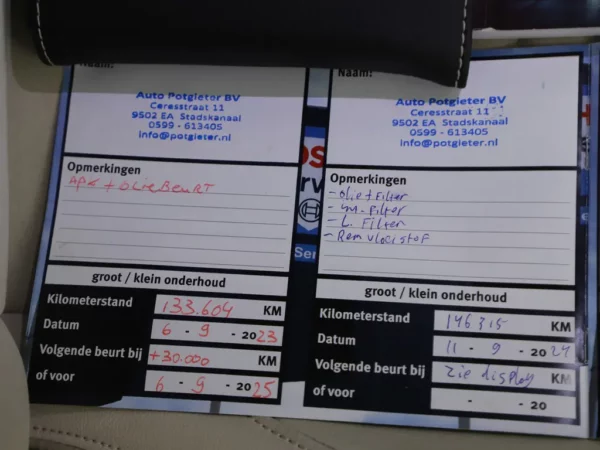 Naam:
Auto Potgieter BV
Ceresstraat 11
9502 EA Stadskanaal
0599 - 613405
info@potgieter.nl
Opmerkingen
APK + OLIEBEURT
groot / klein onderhoud
Kilometerstand 133.604 KM
Datum 6 - 9 - 2023
Volgende beurt bij +30.000 KM
of voor 6 - 9 - 2025
Naam:
Auto Potgieter BV
Ceresstraat 11
9502 EA Stadskanaal
0599 - 613405
info@potgieter.nl
Opmerkingen
- olie + Filter
- m. Filter
- L. Filter
- Remvloeistof
groot / klein onderhoud
Kilometerstand 146315 KM
Datum 11 - 9 - 2024
Volgende beurt bij zie display KM
of voor - - 20